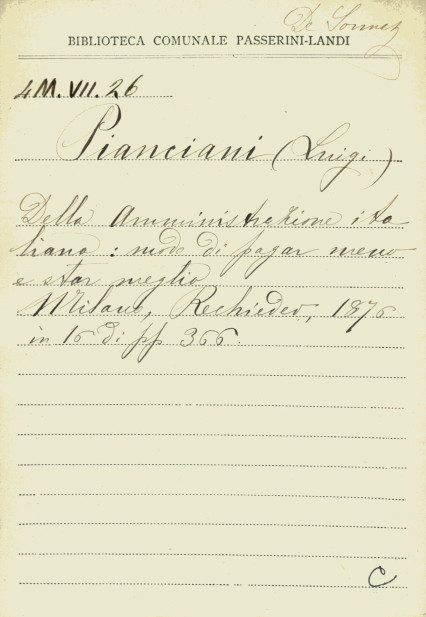 De Sonnez
BIBLIOTECA COMUNALE PASSERINI-LANDI
4M. VII. 26
Pianciani (Luigi)
Della Amministrazione ita
liana: modo di pagar meno
e star meglio
Milano, Rechiedei, 1876
in 16 di pp 366.
C